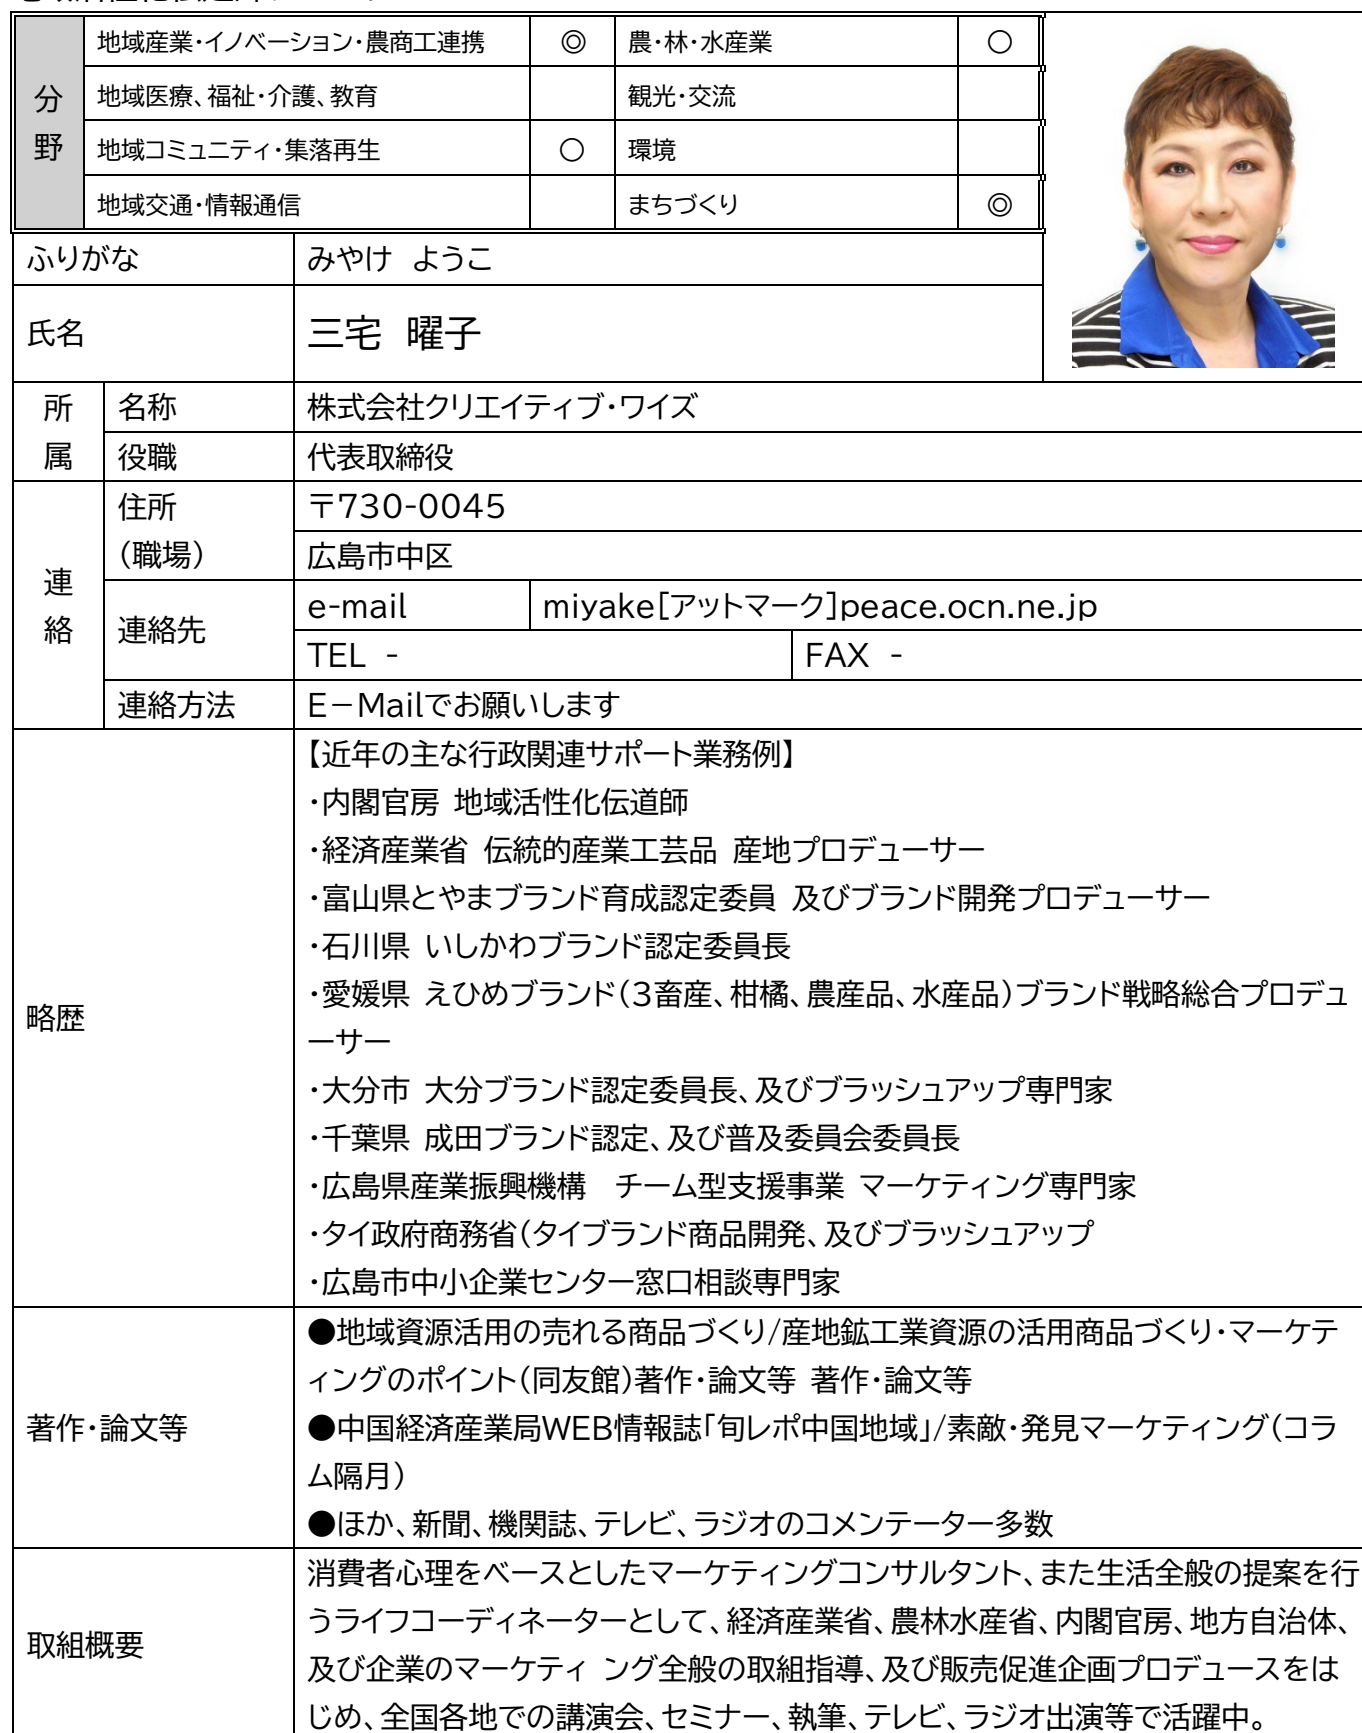 分野
地域産業・イノベーション・農商工連携 ◎ 農・林・水産業 ○
地域医療、福祉・介護、教育 観光・交流
地域コミュニティ・集落再生 ○ 環境
地域交通・情報通信 まちづくり ◎
ふりがな みやけ ようこ
氏名 三宅 曜子
所属 名称 株式会社クリエイティブ・ワイズ
役職 代表取締役
連絡 住所 〒730-0045
（職場） 広島市中区
連絡先 e-mail miyake[アットマーク]peace.ocn.ne.jp
TEL - FAX -
連絡方法 E－Mailでお願いします
略歴
【近年の主な行政関連サポート業務例】
・内閣官房 地域活性化伝道師
・経済産業省 伝統的産業工芸品 産地プロデューサー
・富山県とやまブランド育成認定委員 及びブランド開発プロデューサー
・石川県 いしかわブランド認定委員長
・愛媛県 えひめブランド（3畜産、柑橘、農産品、水産品）ブランド戦略総合プロデュ
ーサー
・大分市 大分ブランド認定委員長、及びブラッシュアップ専門家
・千葉県 成田ブランド認定、及び普及委員会委員長
・広島県産業振興機構　チーム型支援事業 マーケティング専門家
・タイ政府商務省（タイブランド商品開発、及びブラッシュアップ
・広島市中小企業センター窓口相談専門家
著作・論文等
●地域資源活用の売れる商品づくり/産地鉱工業資源の活用商品づくり・マーケテ
ィングのポイント（同友館）著作・論文等 著作・論文等
●中国経済産業局WEB情報誌「旬レポ中国地域」/素敵・発見マーケティング（コラ
ム隔月）
●ほか、新聞、機関誌、テレビ、ラジオのコメンテーター多数
取組概要
消費者心理をベースとしたマーケティングコンサルタント、また生活全般の提案を行
うライフコーディネーターとして、経済産業省、農林水産省、内閣官房、地方自治体、
及び企業のマーケティ ング全般の取組指導、及び販売促進企画プロデュースをは
じめ、全国各地での講演会、セミナー、執筆、テレビ、ラジオ出演等で活躍中。